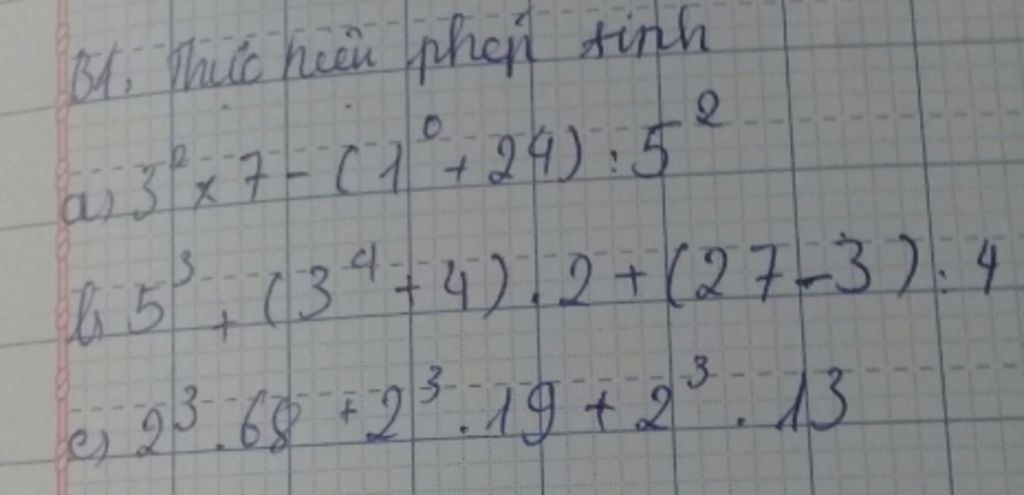 B1. Thực hiện phép tính
a) 3² × 7 - (1⁰ + 24) : 5²
b) 5³ + (3⁴ + 4) . 2 + (27 - 3) : 4
c) 2³ . 68 + 2³ . 19 + 2³ . 13